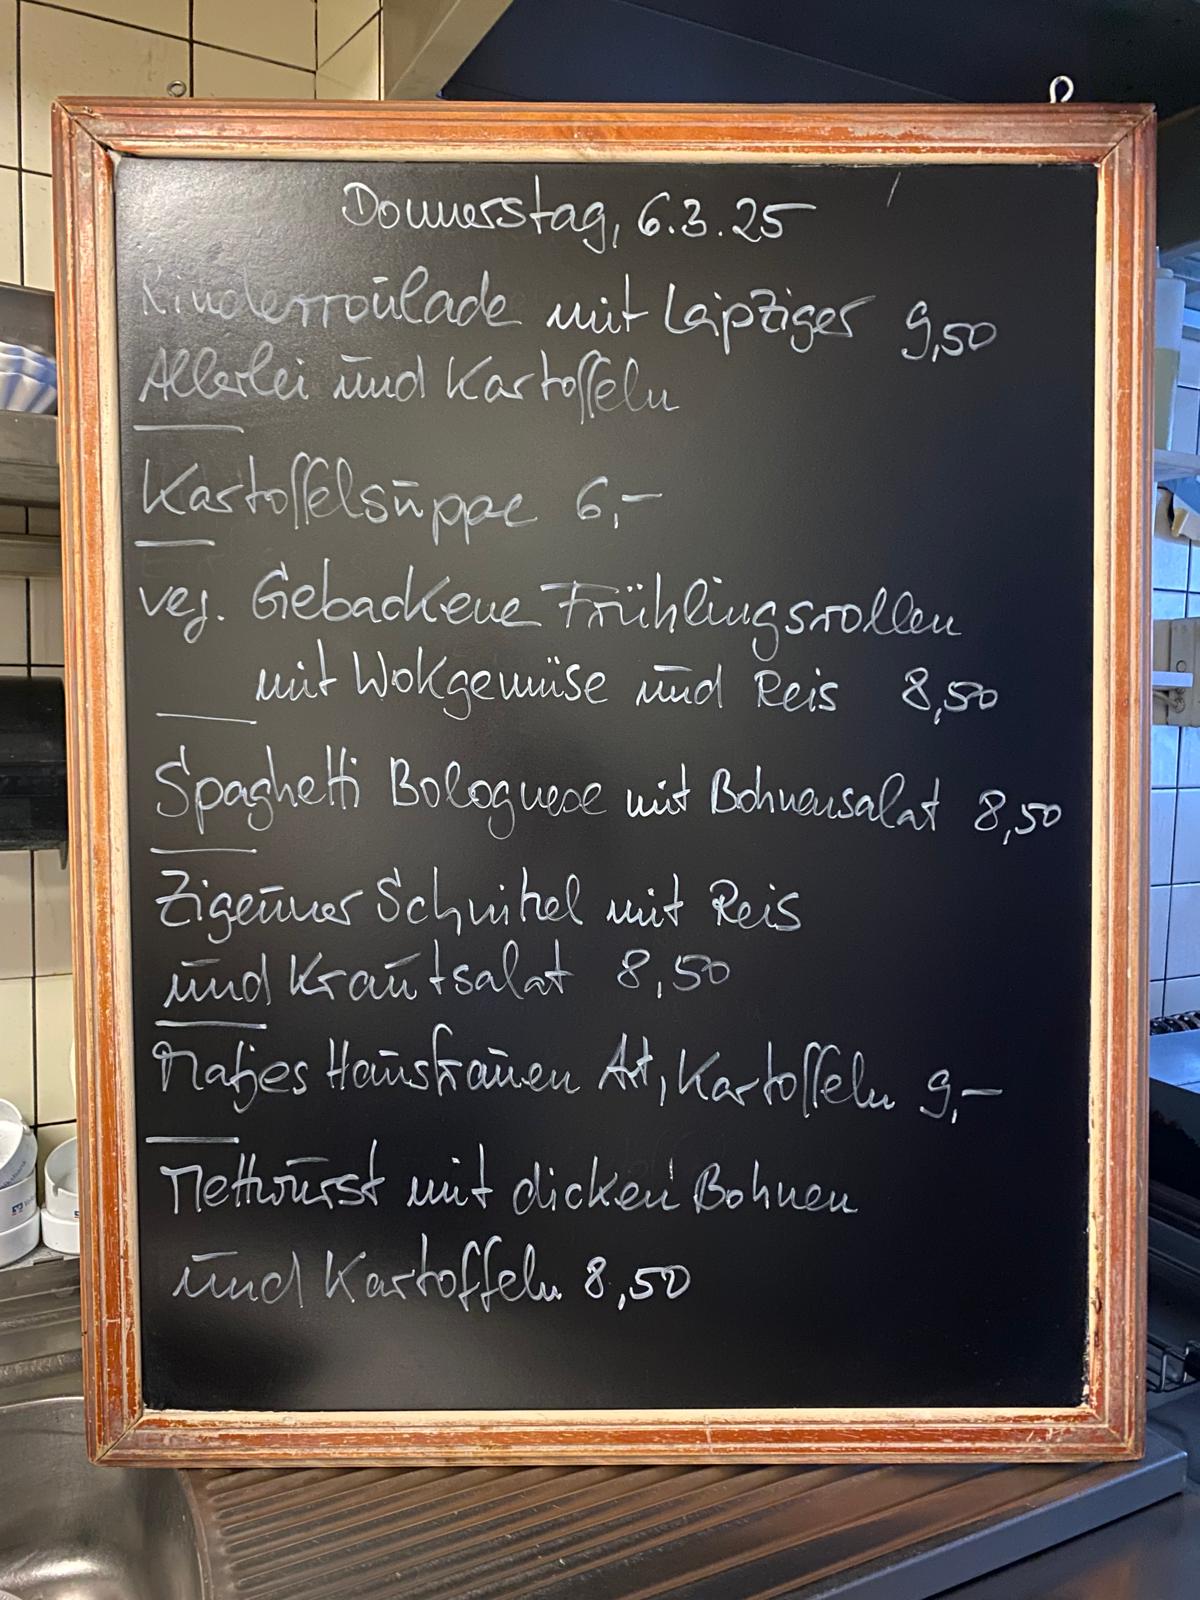 Donnerstag, 6.3.25
Rinderroulade mit Leipziger 9,50
Allerlei und Kartoffeln
Kartoffelsuppe 6,-
veg. Gebackene Frühlingsrollen
mit Wokgemüse und Reis 8,50
Spaghetti Bolognese mit Bohnensalat 8,50
Zigeuner Schnitzel mit Reis
und Krautsalat 8,50
Matjes Hausfrauen Art, Kartoffeln 9,-
Mettwurst mit dicken Bohnen
und Kartoffeln 8,50